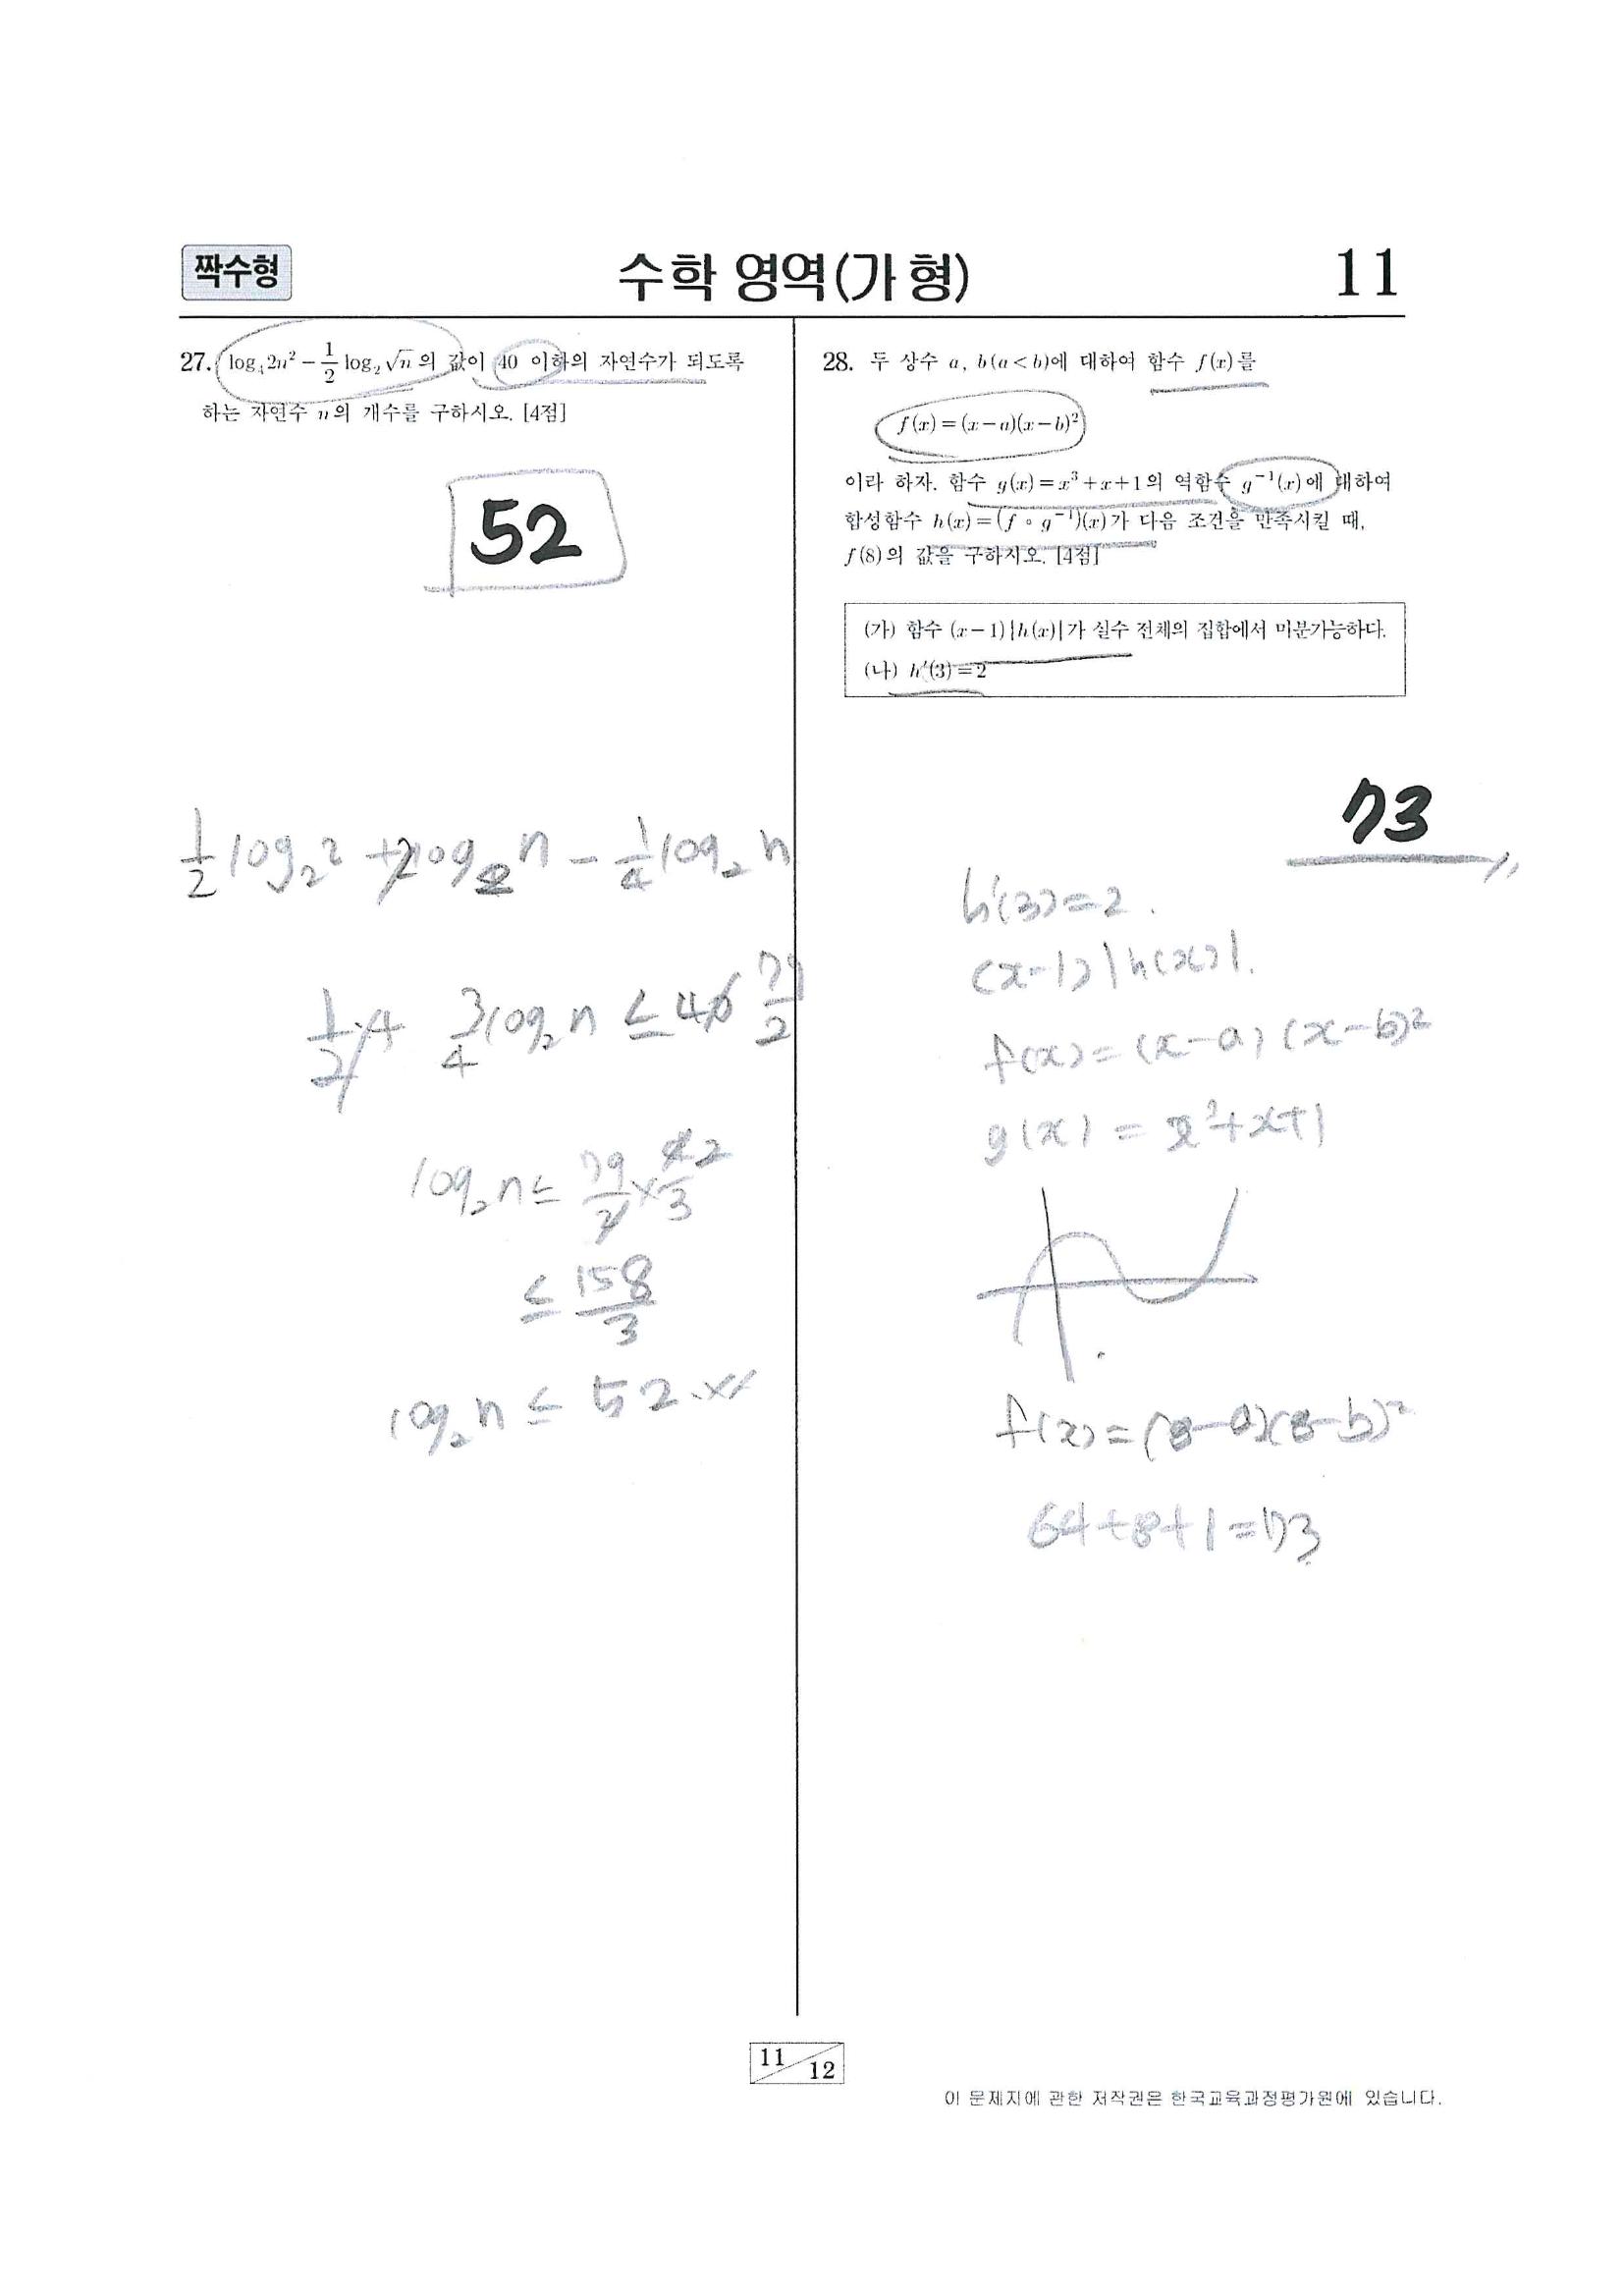 짝수형
수학 영역(가 형)
11
27. log₄2n² − 1/2 log₂√n 의 값이 40 이하의 자연수가 되도록
하는 자연수 n의 개수를 구하시오. [4점]
52
1/2 log₂2 + log₂n − 1/4 log₂n
1/2 + 3/4 log₂n ≤ 40 79/2
log₂n ≤ 79/2 × 42/3
≤ 158/3
log₂n ≤ 52.××
28. 두 상수 a, b(a<b)에 대하여 함수 f(x)를
f(x)=(x−a)(x−b)²
이라 하자. 함수 g(x)=x³+x+1의 역함수 g⁻¹(x)에 대하여
합성함수 h(x)=(f∘g⁻¹)(x)가 다음 조건을 만족시킬 때,
f(8)의 값을 구하시오. [4점]
(가) 함수 (x−1)|h(x)|가 실수 전체의 집합에서 미분가능하다.
(나) h′(3)=2
73
h′(3)=2.
(x−1)|h(x)|.
f(x)=(x−a)(x−b)²
g(x)=x³+x+1
f(x)=(8−a)(8−b)²
64+8+1=73
11/12
이 문제지에 관한 저작권은 한국교육과정평가원에 있습니다.